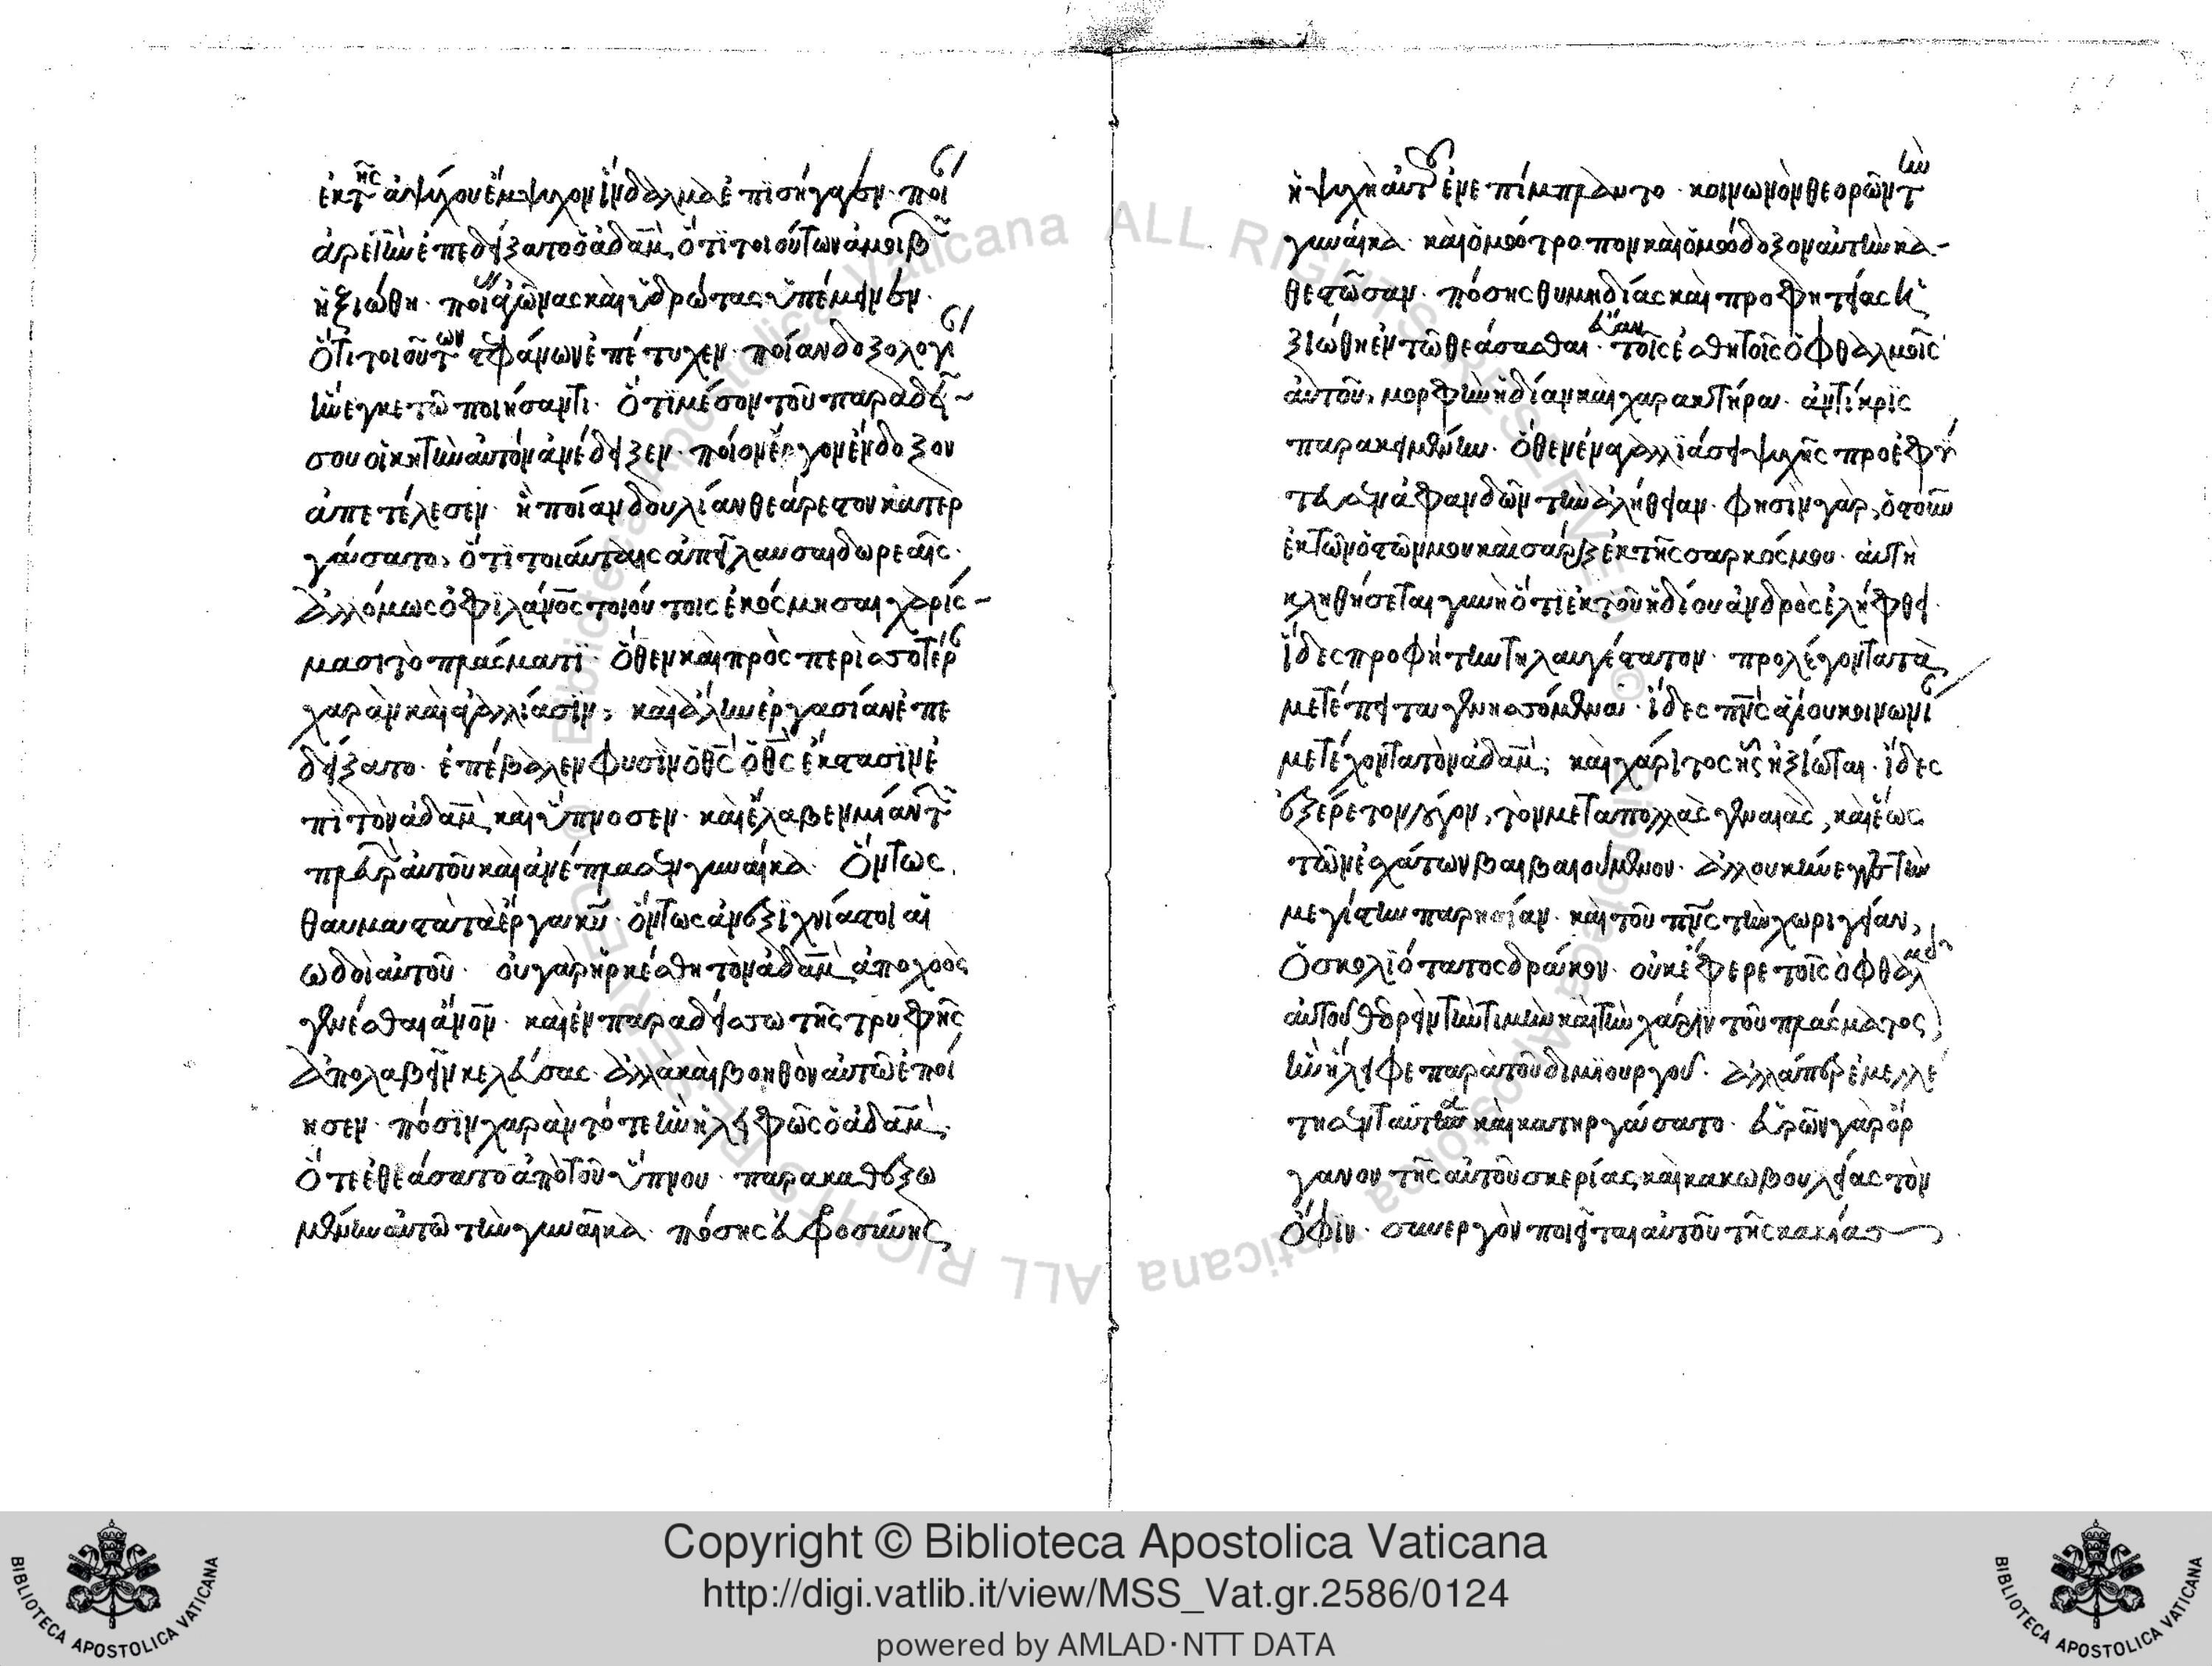 ἐκ τῆς ἀψύχου ἔμψυχον ἴνδαλμα ἐπϊσήγαγεν· ποί
ἀρετὴν ἐπεδείξατο ὁ ἀδὰμ, ὅτϊ τοιούτων ἀμοιβῶν
ἠξιώθη· ποί ἀγῶνας καὶ ἱδρώτας ὑπέμεινεν·
ὅτι τοιούτων στεφάνων ἐπέτυχεν· ποίαν δοξολογί
ἤνεγκε τῶ ποιήσαντι· ὅτϊ μέσον τοῦ παραδεί
σου οἰκητὴν αὐτὸν ἀνέδειξεν· ποίον ἔργον ἔνδοξον
ἀπετέλεσεν· ἢ ποίαν δουλίαν θεάρεστον κατερ
γάσατο, ὅτϊ τοιάυταις ἀπήλαυσαι δωρεαῖς·
ἀλλόμως ὁ φϊλάνος τοιούτοις ἐκόσμησαι χαρίσ-
μασι τὸ πλάσματϊ· ὅθεν καὶ πρὸς περὶσσοτέρ
χαρὰν καὶ ἀγαλλίασϊν, καὶ ἄλλην ἐργασίαν ἐπε
δείξατο· ἐπέβαλεν φυσϊν ὁ θς ὁ θς ἔκστασϊν ἐ
πὶ τὸν ἀδὰμ, καὶ ὕπνοσεν· καὶ ἔλαβεν μίαν τῶν
πλευρῶν αὐτοῦ καὶ ἀνέπλασεν γυναίκα· ὄντως
θαυμαστὰ τὰ ἔργα κυ· ὄντως ἀνεξϊχνίαστοι αἱ
ωδοὶ αὐτοῦ· οὐ γὰρ ἠρκέσθη τὸν ἀδὰμ ἀπο χοὸς
γενέσθαι ἄνον· καὶ ἐν παραδείσω τῆς τρυφῆς
ἀπολαβεῖν κελεύσας· ἀλλὰ καὶ βοηθὸν αὐτῶ ἐποί
ησεν· πόσϊν χαρὰν τότε ἢν ἤληφῶς ὁ ἀδὰμ,
ὅτε ἐθεάσατο ἀπὸ τοῦ ὕπνου· παρακαθεζω
μένην αὐτῶ τὴν γυναῖκα· πόσης εὐφροσύνης
ἡ ψυχὴ αὐτοῦ ἐνεπίμπλαντο· κοινωνὸν θεορῶν τὴν
γυναίκα· καὶ ὁμοότροπον καὶ ὁμοόδοξον αὐτὴν κα-
θεστῶσαν· πόσης θυμηδίας καὶ προφητείας κα
ξιώθη ἐν τῶ θεάσασθαι εὔαν· τοῖς ἐσθητοῖς ὀφθαλμοῖς
αὐτοῦ, μορφὴν ἠδίαν καὶ χαρακτήραι· ἀντίκρϊς
παρακειμένην· ὅθεν ἐν ἀγαλλϊάσει ψυχῆς προέφη
τευσεν ἀφανδῶν τὴν ἀλήθειαν· φησὶν γὰρ, ὀστοῦν
ἐκ τῶν ὀστῶν μου καὶ σάρξ ἐκ τῆς σαρκός μου· αὐτὴ
κληθήσεται γυνὴ ὅτϊ ἐκ τοῦ ἠδίου ἀνδρὸς ἐλήφθει·
ἴδες προφήτην τηλαυγέστατον· προλέγοντα τὰ
μετέπειτα γενησόμεναι· ἴδες πνς ἁγίου κοινωνί
μετέχοντα τὸν ἀδὰμ, καὶ χάρϊτος ἧς ἠξίωται· ἴδες
ἐξέρετον λόγον, τὸν μετα πολλὰς γενεὰς, καὶ ἕως
τῶν ἐσχάτων βαιβαιούμενον· ἀλλ ουκ ἤνεγκεν τὴν
μεγίστην παρησίαν· καὶ τοῦ πνς τὴν χωριγείαν,
ὁ σκολϊότατος δράκον· οὐκ ἔφερε τοῖς ὀφθαλμοῖς
αὐτοῦ θορὴν τὴν τιμὴν καὶ τὴν χάρϊν τοῦ πλάσματος,
ἣν ἤληφε παρὰ τοῦ διμϊουργοῦ· ἀλλάπερ ἐμελλέ
τησεν ταύτα καὶ κατηργάσατο· εὑρῶν γὰρ ὄρ
γανον τῆς αὐτοῦ σκερίας καὶ κακωβουλείας τὸν
ὄφϊν· συνεργὸν ποιεῖται αὐτοῦ τῆς κακίας
Copyright © Biblioteca Apostolica Vaticana
http://digi.vatlib.it/view/MSS_Vat.gr.2586/0124
powered by AMLAD·NTT DATA
BIBLIOTECA APOSTOLICA VATICANA
BIBLIOTECA APOSTOLICA VATICANA